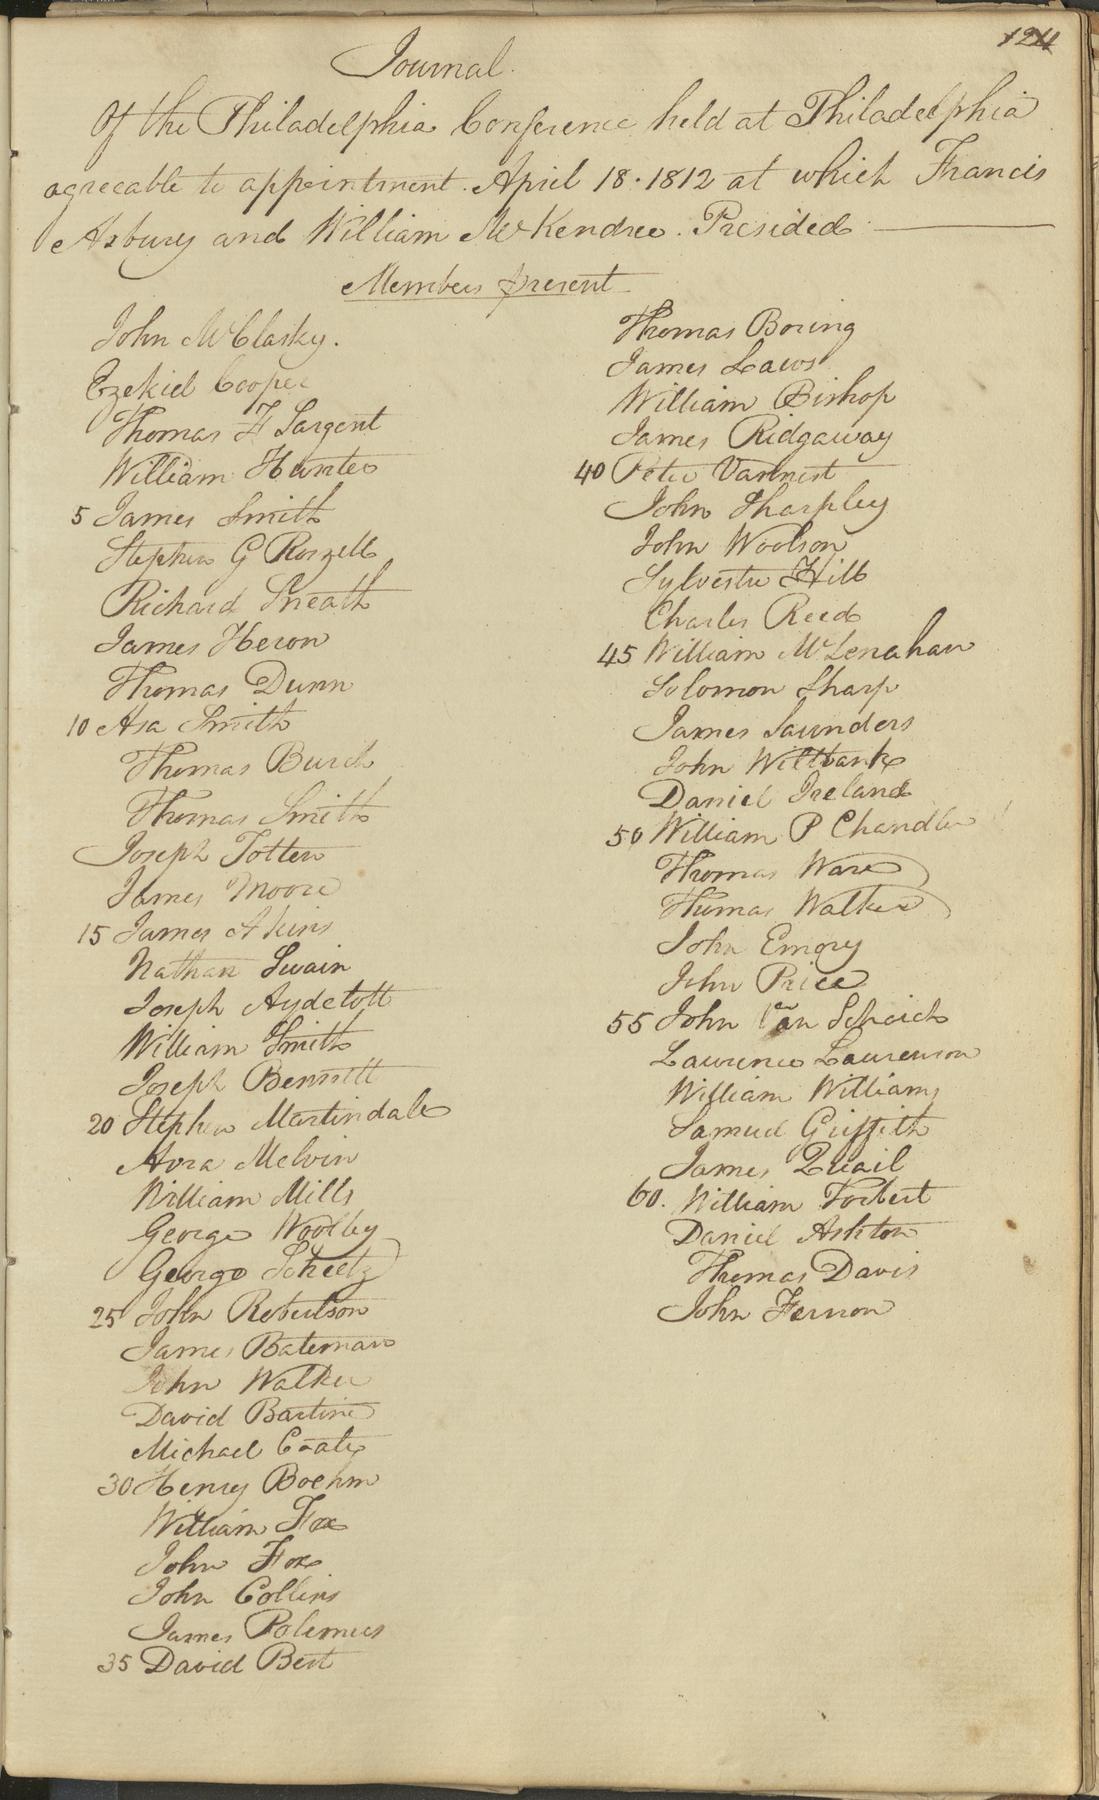 124
Journal
Of the Philadelphia Conference held at Philadelphia
agreeable to appointment. April 18. 1812 at which Francis
Asbury and William McKendree. Presided
Members present
John McClasky.
Ezekiel Cooper
Thomas F Sargent
William Hunter
5 James Smith
Stephen G Roszell
Richard Sneath
James Heron
Thomas Dunn
10 Asa Smith
Thomas Burch
Thomas Smith
Joseph Totten
James Moore
15 James Akins
Nathan Swain
Joseph Aydelott
William Smith
Joseph Bennett
20 Stephen Martindale
Avra Melvin
William Mills
George Woolley
George Scheetz
25 John Robertson
James Bateman
John Walker
David Bartine
Michael Coate
30 Henry Boehm
William Fox
John Fox
John Collins
James Polemus
35 David Best
Thomas Boring
James Laws
William Bishop
James Ridgaway
40 Peter Vannest
John Sharpley
John Woolson
Sylvester Hill
Charles Reed
45 William McLenahan
Solomon Sharp
James Saunders
John Wiltbank
Daniel Ireland
50 William P Chandler
Thomas Ware
Thomas Walker
John Emory
John Price
55 John Van Schoick
Lawrence Laurenson
William Williams
Samuel Griffith
James Quail
60. William Torbert
Daniel Ashton
Thomas Davis
John Fernon